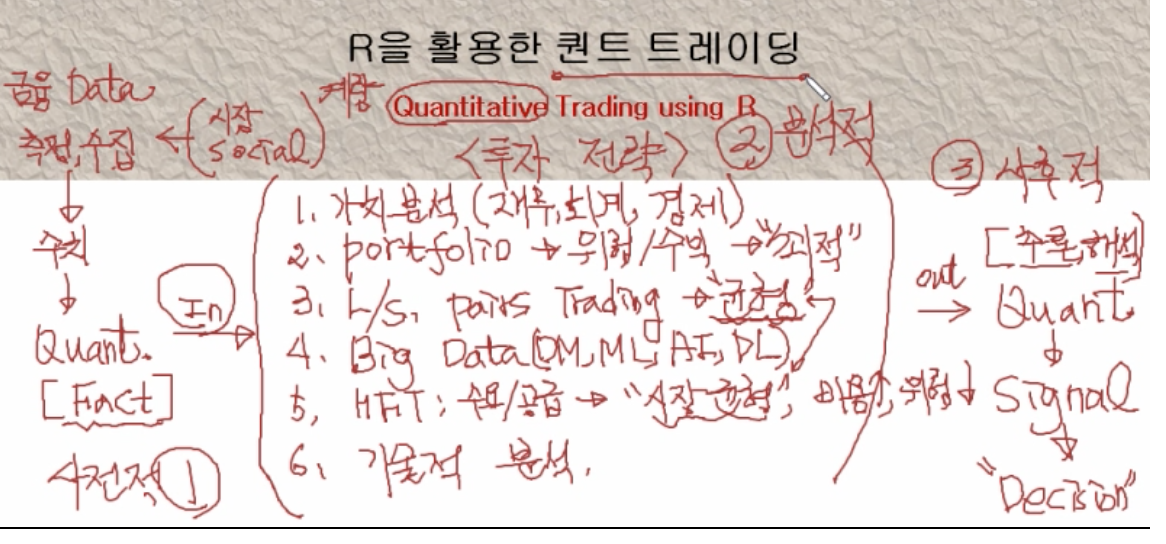 R을 활용한 퀀트 트레이딩
계량 Quantitative Trading using R
금융 Data
측정, 수집 ← (시장 social)
↓
수치
↓
Quant.
[Fact]
사전적 ①
In →
<투자 전략> ② 분석적
1. 가치분석 (재무, 회계, 경제)
2. portfolio → 위험/수익 → "최적"
3. L/S, pairs Trading → "균형"
4. Big Data(DM, ML, AI, DL)
5. HFT: 수요/공급 → "시장균형", 비용↑, 위험↓
6. 기술적 분석.
out →
③ 사후적
[추론, 해석]
Quant.
↓
Signal
↓
"Decision"